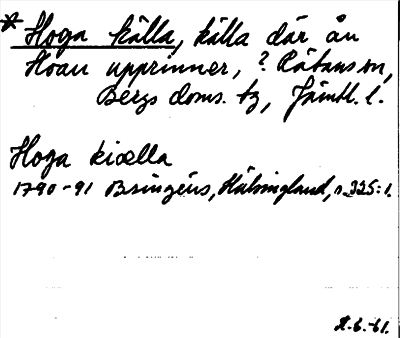 * Hoga källa, källa där ån
Hoan upprinner, ? Rätans sn,
Bergs doms. tg, Jämtl. l.
Hoga kiælla
1790-91 Bsingéus, Hälsingland, s. 325: 1.
61.